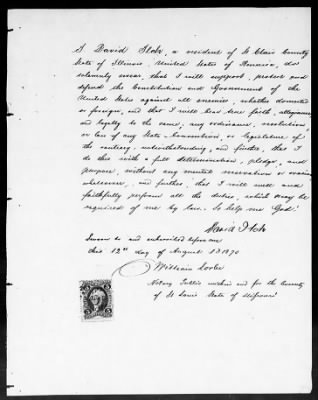 I David Stohr, a resident of St Clair County
State of Illinois, United States of America, do
solemnly swear, that I will support, protect and
defend the Constitution and Government of the
United States against all enemies, whether domestic
or foreign, and that I will bear true faith, allegiance
and loyalty to the same, any ordinance, resolution
or law of any State, Convention, or legislature to
the contrary, notwithstanding, and further, that I
do this with a full determination, pledge, and
purpose, without any mental reservation or evasion
whatsoever, and further, that I will well and
faithfully perform all the duties, which may be
required of me by law. So help me God!
David Stohr
Sworn to and subscribed before me
this 12th day of August 1870
William
Notary Public within and for the County
of St Louis State of Missouri